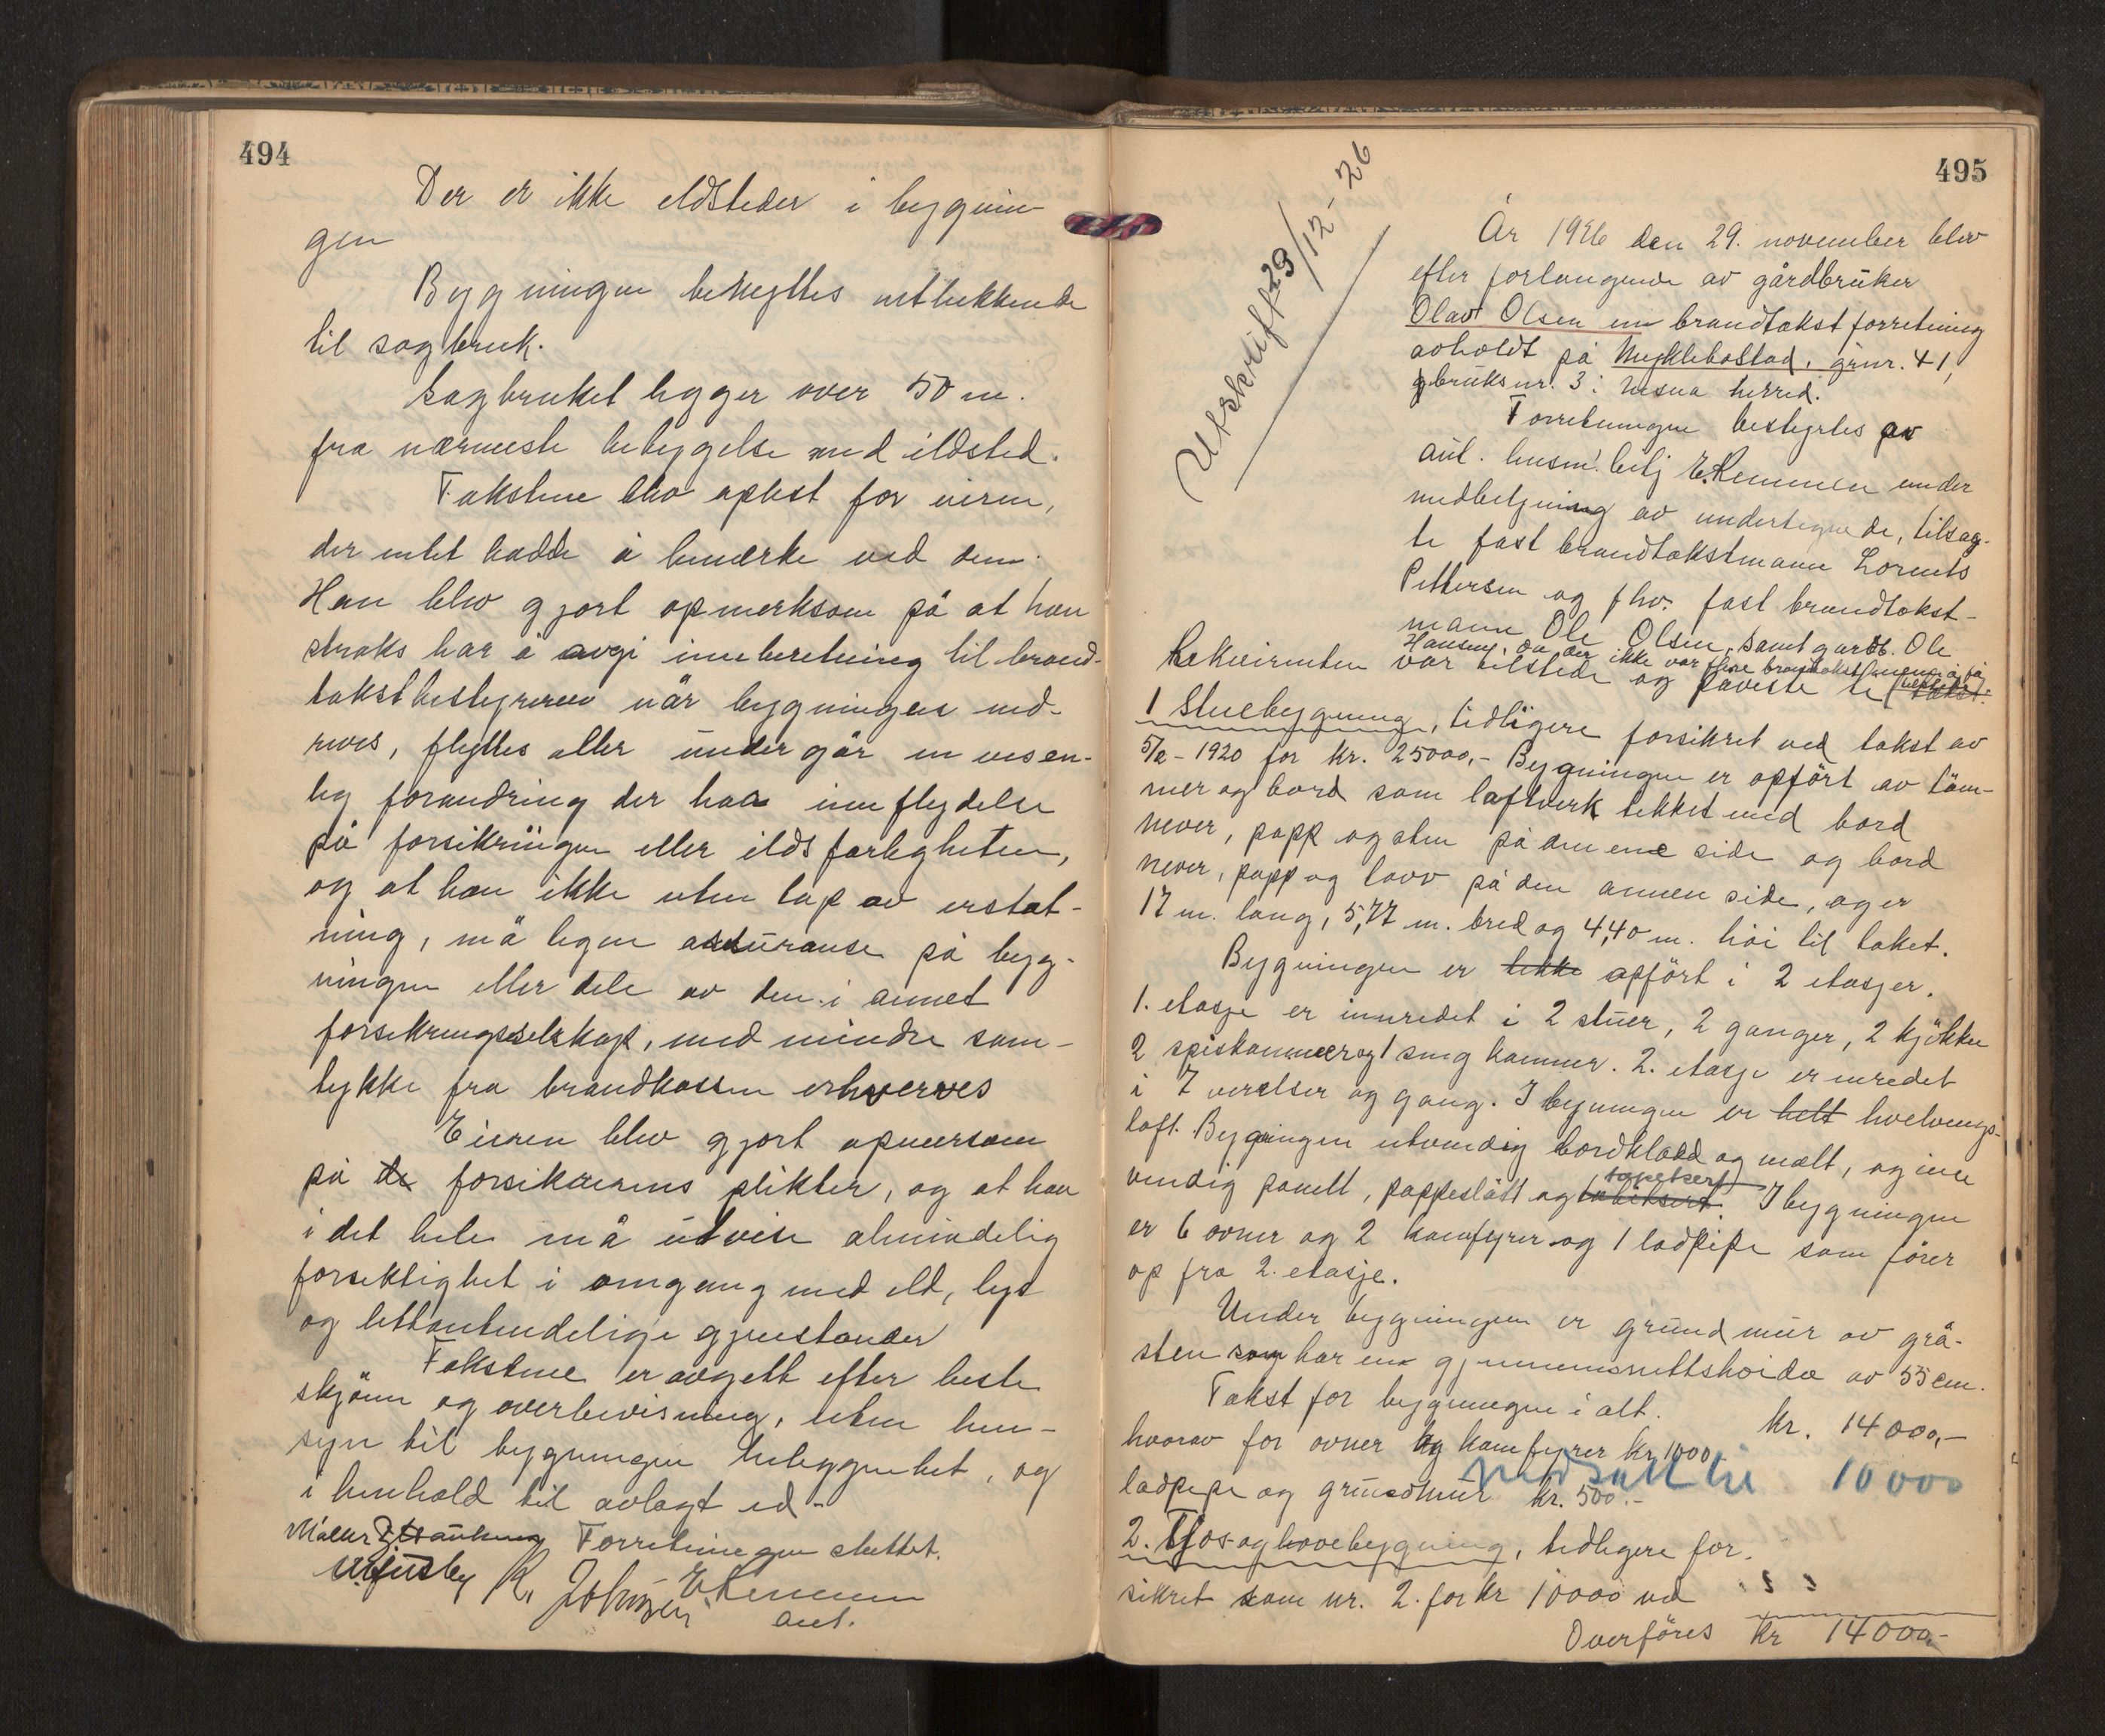 494
Der er ikke eldsteder i bygnin
gen
Bygningen benyttes utelukkende
til sagbruk.
Sagbruket ligger over 50 m.
fra nærmeste bebyggelse med ildsted.
Takstene blev oplest for eieren,
der intet hadde å bemerke ved dem.
Han blev gjort opmerksom på at han
straks har å avgi innberetning til brand-
takstbestyreren når bygningen ned-
rives, flyttes eller undergår en vesen-
lig forandring der har innflydelse
på forsikringen eller ildsfarligheten,
og at han ikke uten tap av erstat-
ning, må tegne assuranse på byg-
ningen eller dele av den i annet
forsikringsselskap, med mindre sam-
tykke fra brandkassen erhverves
Eieren blev gjort opmersom
på de forsikrerens plikter, og at han
i det hele må utvise almindelig
forsiktighet i omgang med ild, lys
og lettantendelige gjenstander
Takstene er avgett efter beste
skjönn og overbevisning, uten hen-
syn til bygningen beleggenhet, og
i henhold til avlagt ed-
Forretningen sluttet.
R. Johnsen E. Remmen
aut.
495
Utskrift 29/12-26
År 1926 den 29. november blev
efter forlangende av gårdbruker
Olav Olsen en brandtakst forretning
avholdt på Myklebostad, grnr. 41,
bruksnr. 3 i Nesna herred.
Forretningen bestyrtes av
aut. lensm. betj E. Remmen under
medbetjening av undertegnede, tilsag-
te fast brandtakstmann Lorents
Pettersen og fhv. fast brandtakst-
mann Ole Olsen, samt gardb. Ole
Hansen, da der ikke var flere brandtakstmenn å få
Rekvirenten var tilstede og påviste til takst:
1 Stuebygning, tidligere forsikret ved takst av
5/2-1920 for kr. 25000,- Bygningen er opfört av töm-
mer og bord som laftverk tekket med bord
never, papp og sten på den ene side og bord
never, papp og torv på den annen side, og er
17 m. lang, 5,77 m. bred og 4,40 m. höi til taket.
Bygningen er tekke opfört i 2 etasjer.
1. etasje er innredet i 2 stuer, 2 ganger, 2 kjökken
2 spiskammer og 1 smg kammer. 2. etasje er inredet
i 7 værelser og gang. I bygningen er helt hvelvings-
loft. Bygningen utvendig bordkledd og malt, og inn
vendig panelt, pappeslått og tapetsert I bygningen
er 6 ovner og 2 komfyrer og 1 ladpipe som förer
op fra 2. etasje.
Under bygningen er grundmur av grå-
sten som har en gjennemsnittshöide av 55 cm.
Takst for bygningen i alt. kr. 14000,-
hvorav for ovner og komfyrer kr. 1000
nedsatt til 10000
ladpipe og grundmur kr. 500.-
2. Fjös- og lovebygning, tidligere for-
sikret som nr. 2. for kr 10000 ved
Overföres kr 14000,-